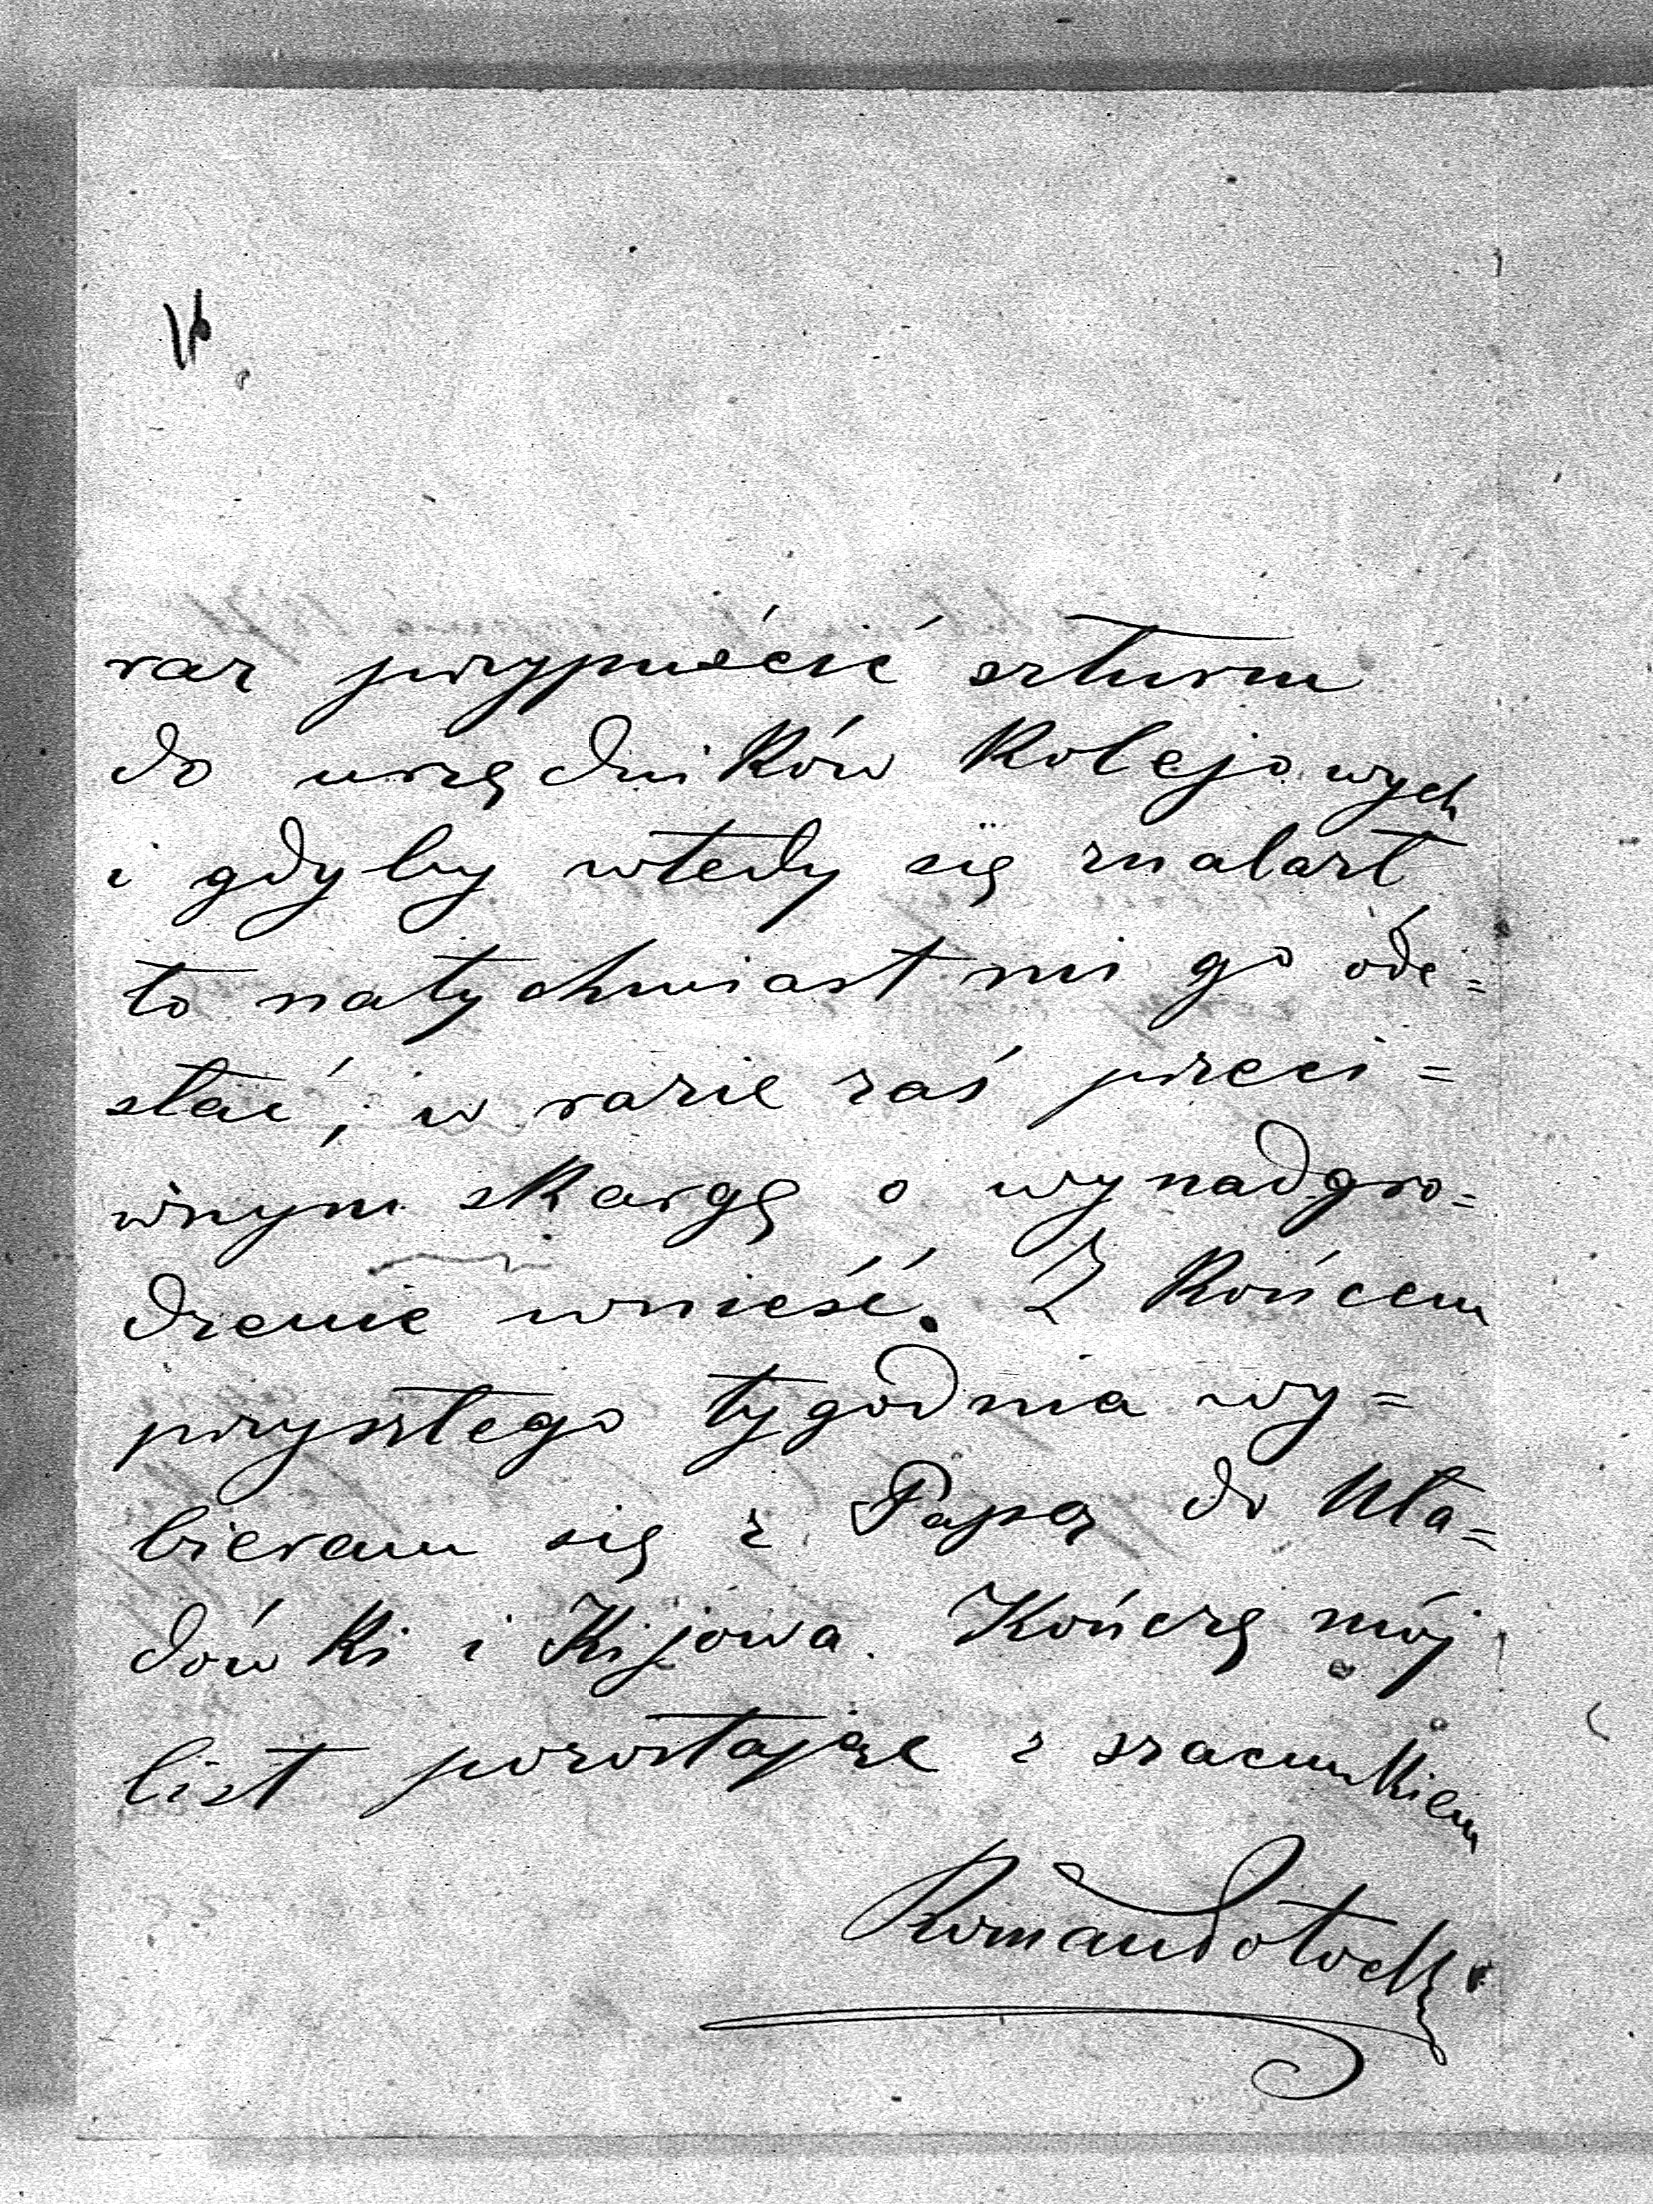 raz przypuścić szturm
do urzędników kolejowych
i gdyby wtedy się znalazł
to natychmiast mi go ode=
słać, w razie zaś przeci=
wnym skargę o wynadgro=
dzenie wnieść. Z końcem
przyszłego tygodnia wy=
bieram się z Papą do Kła=
dówki i Kijowa. Kończę mój
list pozostając z szacunkiem
Roman Potocki